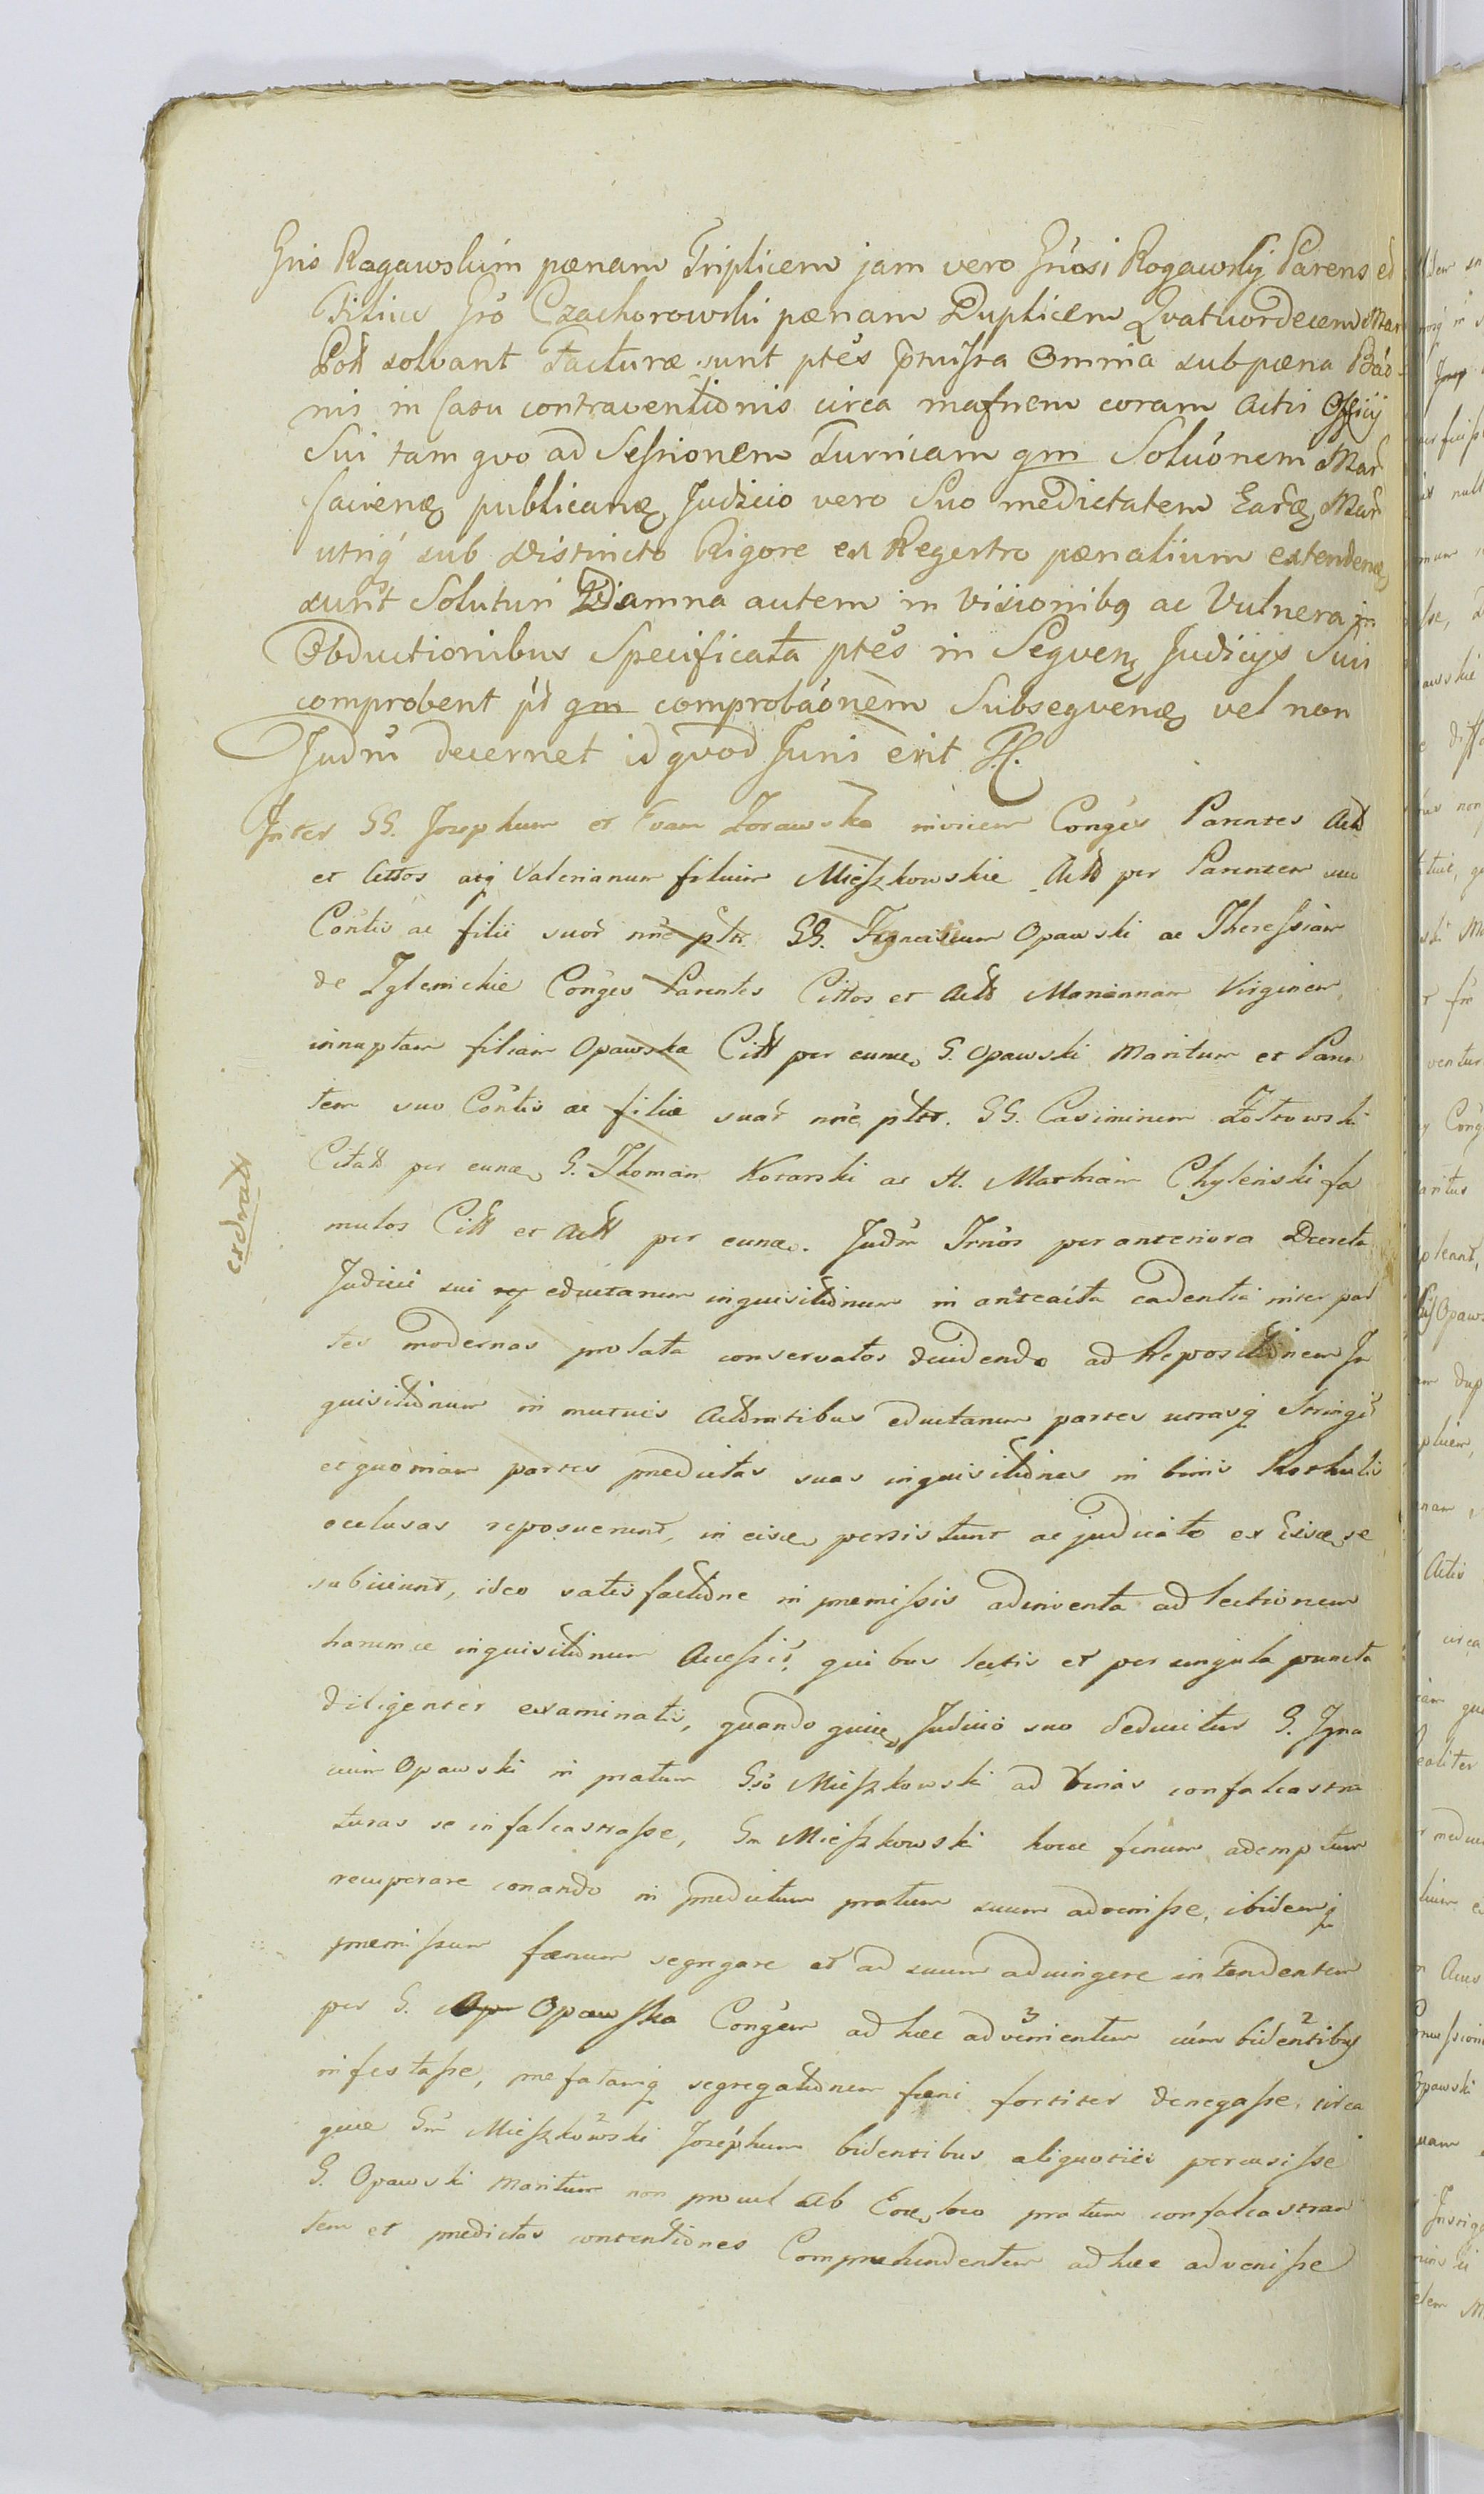 Gnis Rogawskim pænam Triplicem jam vero Gnosi Rogawskij Parens et
Filius Gso Czachorowski pænam Duplicem Qvatuordecem Mar
Poł solvant Facturæ sunt ptes pmissa Omnia sub pæna Bão-
nis in Casu contraventionis circa mafnem coram Actis Officij
Sui tam qvo ad Sessionem Turriam qm Soluõnem Mar
publicanæ, Judicio vero Suo medietatem Earæ, Mar
utriq sub distincto Rigore ex Regestro pænalium extendenæ
sunt Soluturi Damna autem in Visionibq ac Vulnera in
Obductionibus Specificata ptes in Seqven Judicijs Suis
comprobent pt qm comprobãonem Subseqvenæ vel non
Judm decernet id qvod Juris erit
Inter GG. Josephum et Evam Zorawska invicem Conges Parentes Actt
et Cittos atq Valerianum filium Mieszkowskie Actt per Parentem suo
Contis ac filii suor nne ptt. GG. Ignatium Opawski ac Theressiam
de Zglenickie Conges Parentes Cittos et Actt Mariannam Virginem
innuptam filiam Opawska Citt per eunæ G. Opawski Maritum et Paren
tem suo Contis ac filiæ suar nne ptt. GG. Casimirum Zołtowski
Citatt per eunæ, G. Thomam Kotarski ac H. Mathiam Chylenski fa
mulos Citt et Actt per eunæ. Judm Trnos per anteriora Decreta
exdratt
Judicii sui eductarum inquisitionum in anteacta cadentia inter par
tes modernas prolata conservatos decidendo ad Repositionem In
quisitionum in mutuis Acttoratibus eductarum partes utrasq Stringit
et quoniam partes predictas suas inquisitiones in binis Rothulis
occlusas reposuerunt, in eisæ persistunt ac judicato ex Eisæ se
subiiciunt, ideo satisfactione in premissis adinventa ad lectionem
harumce inquisitionum Accessit, quibus lectis et per singula puncta
diligenter examinatis, quando quiæ Judicio suo deducitur G. Igna
cium Opawski in pratum Gso Mieszkowski ad binas confalcastra
turas se infalcastrasse, Gm Mieszkowski hocce fenum ademptum
recuperare conando in predictum pratum suum advenisse, ibidemq
premissum fænum segregare et ad suum adiungere intendentem
per G. Op Opawska Congem ad hæc advenientem cum bidentibus
infestasse, prefatamq segregationem fæni fortiter denegasse, circa
quæ Gm Mieszkowski Josephum bidentibus aliquoties percusisse
G. Opawski Maritum non procul ab Eoæ loco pratum confalcastran
tem et predictas contentiones Comprehendentem ad hæc advenisse